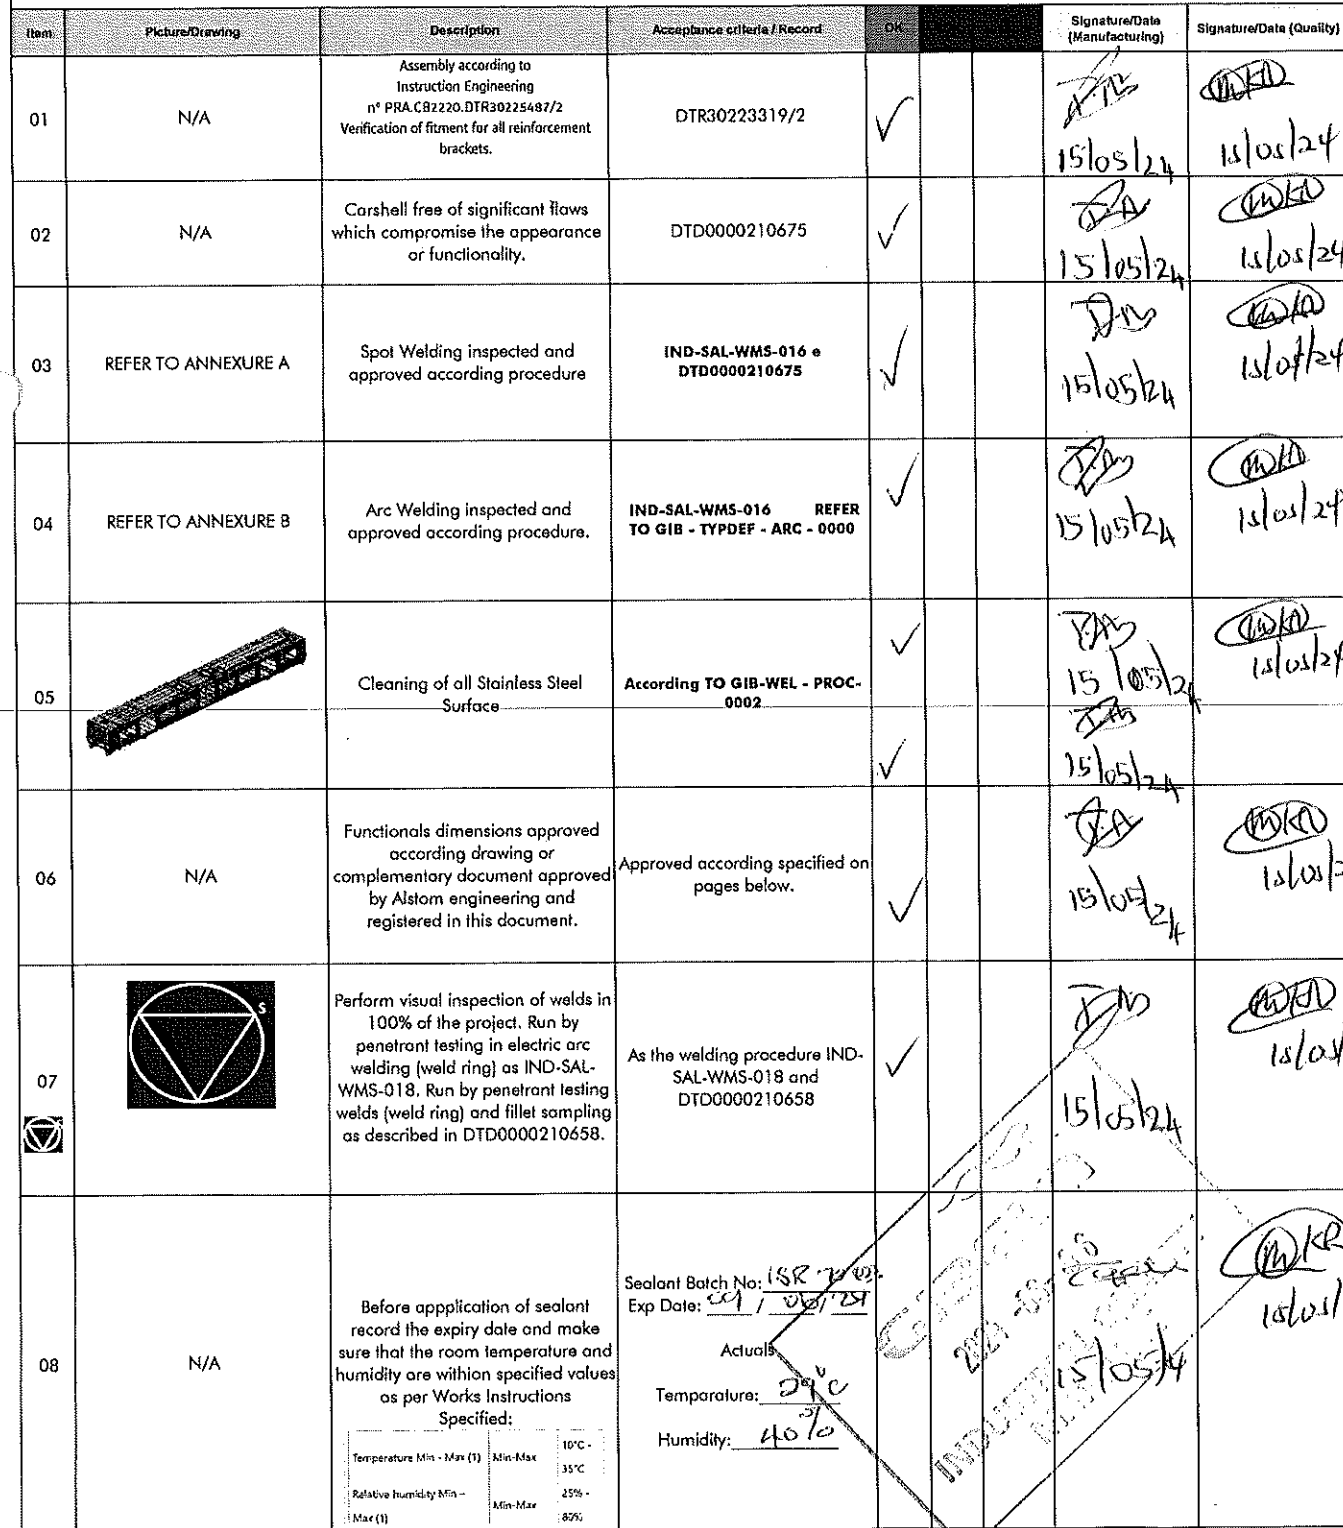 Item Picture/Drawing Description Acceptance criteria / Record OK Signature/Date (Manufacturing) Signature/Date (Quality)
01
N/A
Assembly according to
Instruction Engineering
n° PRA.CB2220.DTR30225487/2
Verification of fitment for all reinforcement
brackets.
DTR30223319/2
15/05/24
15/05/24
02
N/A
Carshell free of significant flaws
which compromise the appearance
or functionality.
DTD0000210675
15/05/24
15/05/24
03
REFER TO ANNEXURE A
Spot Welding inspected and
approved according procedure
IND-SAL-WMS-016 e
DTD0000210675
15/05/24
04
REFER TO ANNEXURE B
Arc Welding inspected and
approved according procedure.
IND-SAL-WMS-016 REFER
TO GIB - TYPDEF - ARC - 0000
15/05/24
15/05/24
05
Cleaning of all Stainless Steel
Surface
According TO GIB-WEL - PROC-
0002
15/05/24
15/05/24
15/05/24
06
N/A
Functionals dimensions approved
according drawing or
complementary document approved
by Alstom engineering and
registered in this document.
Approved according specified on
pages below.
15/05/24
07
S
Perform visual inspection of welds in
100% of the project. Run by
penetrant testing in electric arc
welding (weld ring) as IND-SAL-
WMS-018. Run by penetrant testing
welds (weld ring) and fillet sampling
as described in DTD0000210658.
As the welding procedure IND-
SAL-WMS-018 and
DTD0000210658
15/05/24
08
N/A
Before appplication of sealant
record the expiry date and make
sure that the room temperature and
humidity are withion specified values
as per Works Instructions
Specified:
Temperature Min - Max (1) Min-Max 10°C -
35°C
Relative humidity Min -
Max (1) Min-Max 25% -
80%
Sealant Batch No:
Exp Date:
Actuals
Temparature: 29°C
Humidity: 40%